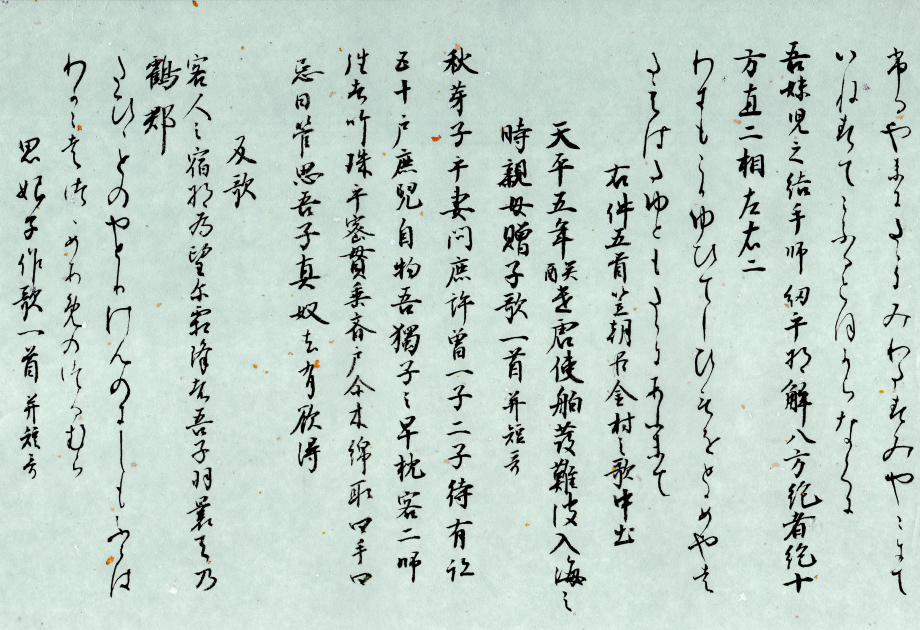 布るやまにたゝにみわたすみやこにて
いねすてこふるとほからなくに
吾妹児之結手師紐乎将解八方絶者絶十
方直二相左右二
わきもこかゆひてしひもをとかめやも
たえはたゆともたゝにあふまて
右件五首笠朝臣金村之歌中出
天平五年癸酉遣唐使舶發難波入海之
時親母贈子歌一首并短哥
秋芽子乎妻問鹿許曽一子二子待有跡
五十戸鹿兒自物吾獨子之草枕客二師
徃者竹珠乎密貫垂斎戸尒木綿取四手而
忌日管思吾子真好去有欲得
反歌
客人之宿将為野尒霜降者吾子羽裹天乃
鶴群
たひゝとのやとりせんのにしもふらは
わかこはくゝめあめのつるむら
思娘子作歌一首并短哥